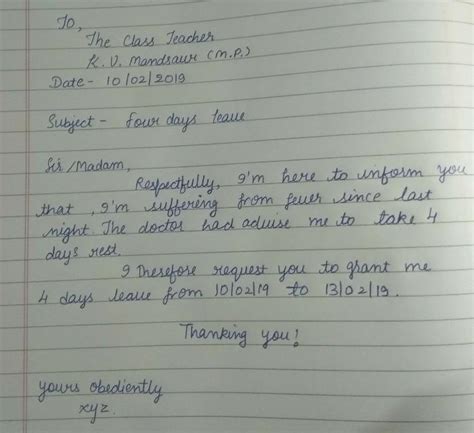 To,
The Class Teacher
K. V. Mandsaur (M.P.)
Date - 10/02/2019
Subject - four days leave
Sir/Madam,
Respectfully, I'm here to inform you
that, I'm suffering from fever since last
night. The doctor had advise me to take 4
days rest.
I Therefore request you to grant me
4 days leave from 10/02/19 to 13/02/19.
Thanking you!
yours obediently
xyz.